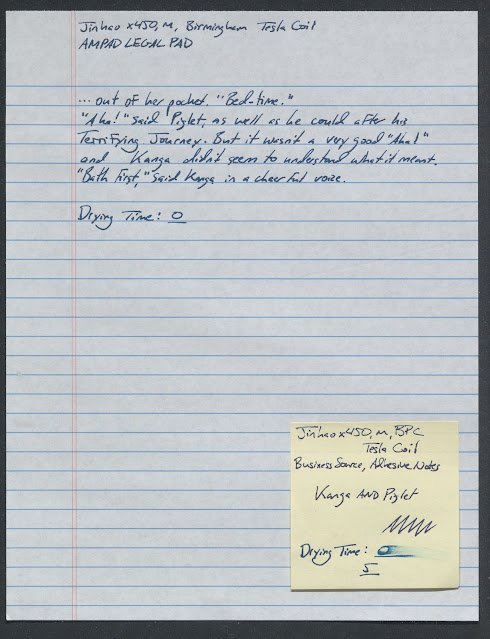 Jinhao x450, M, Birmingham Tesla Coil
AMPAD LEGAL PAD
...out of her pocket. "Bed-time."
"Aha!" said Piglet, as well as he could after his
Terrifying Journey. But it wasn't a very good "Aha!"
and Kanga didn't seem to understand what it meant.
"Bath first," said Kanga in a cheerful voice.
Drying Time: 0
Jinhao x450, M, BPC
Tesla Coil
Business Source, Adhesive Notes
Kanga AND Piglet
Drying Time: 0
5